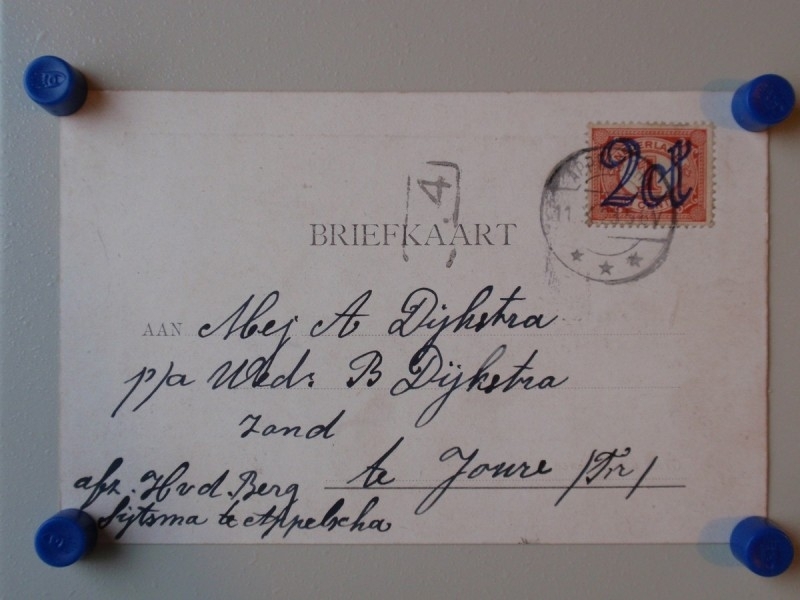 NEDERLAND
2ct
CENT
11
4
BRIEFKAART
AAN Mej A Dijkstra
p/a Wed: B Dijkstra
Zand
te Joure /Fr/
afz. H v d. Berg
Sijtsma te Appelscha